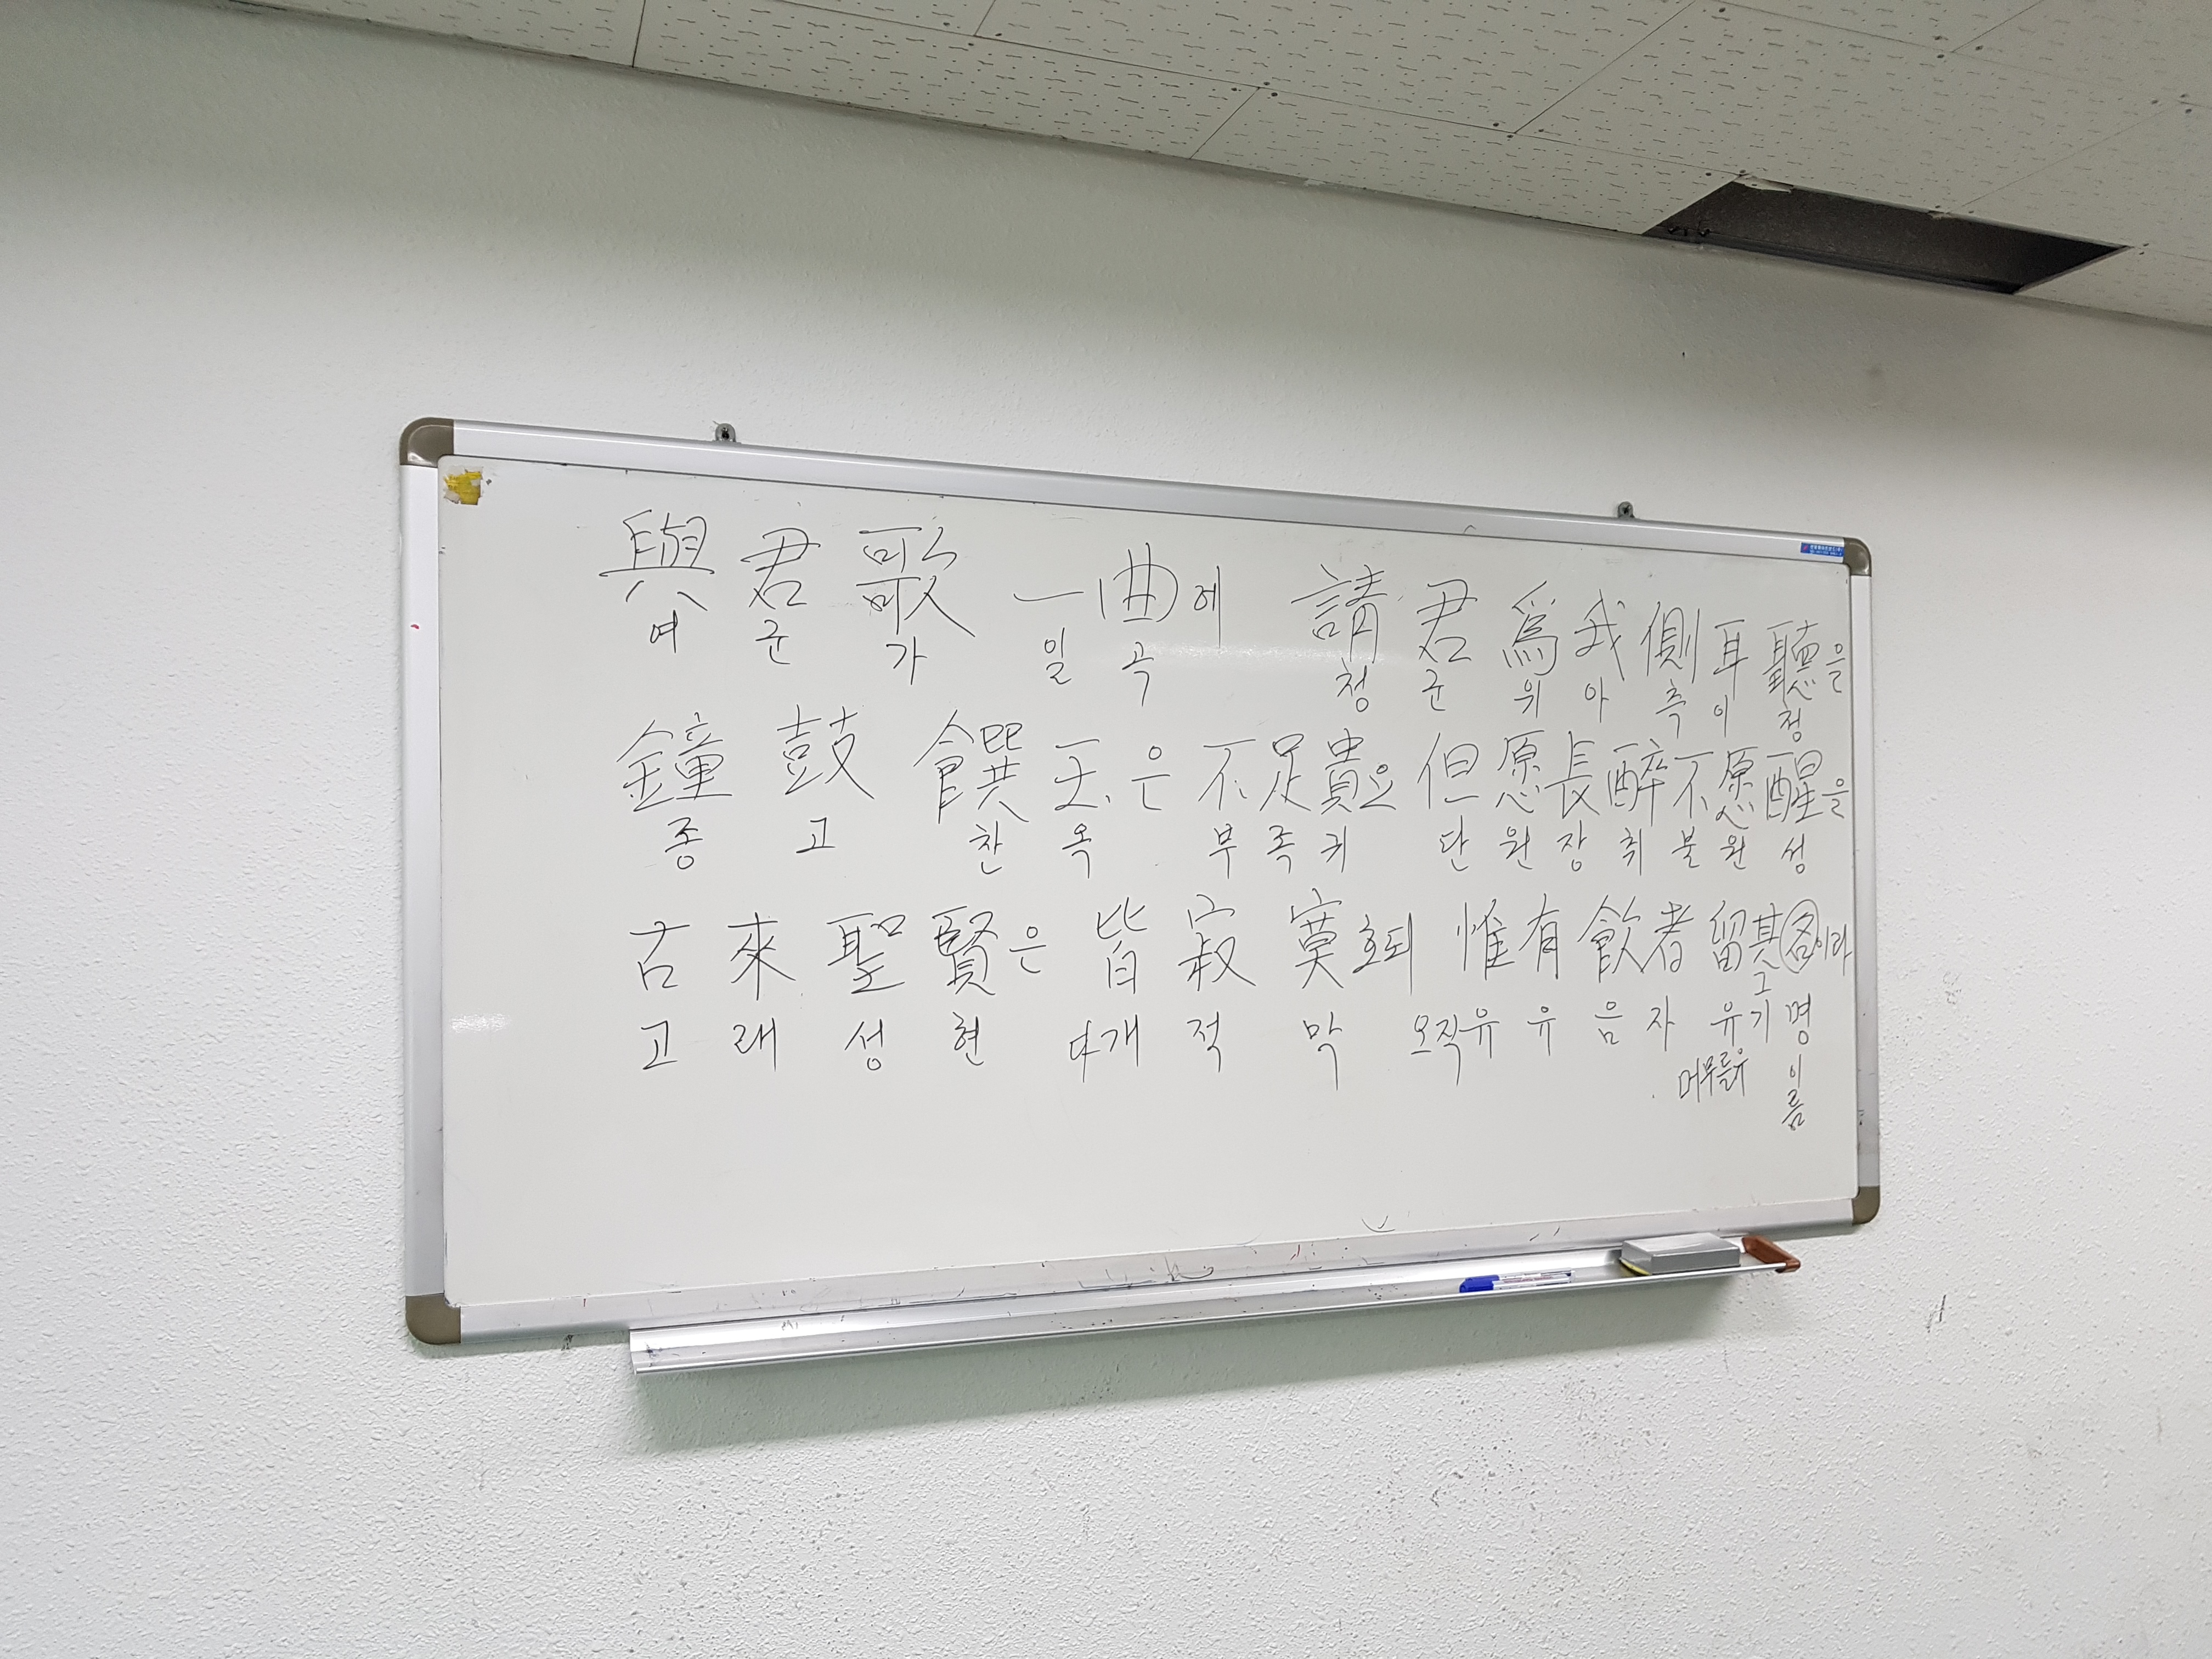 與君歌 一曲에 請君爲我側耳聽을
여 군 가 일 곡 청 군 위 아 측 이 청
鐘鼓饌玉은 不足貴요 但愿長醉不愿醒을
종 고 찬 옥 부 족 귀 단 원 장 취 불 원 성
古來聖賢은 皆寂寞호되 惟有飮者留其名이라
그
고 래 성 현 다개 적 막 오직유 유 음 자 유 기 명
머무를유 이름